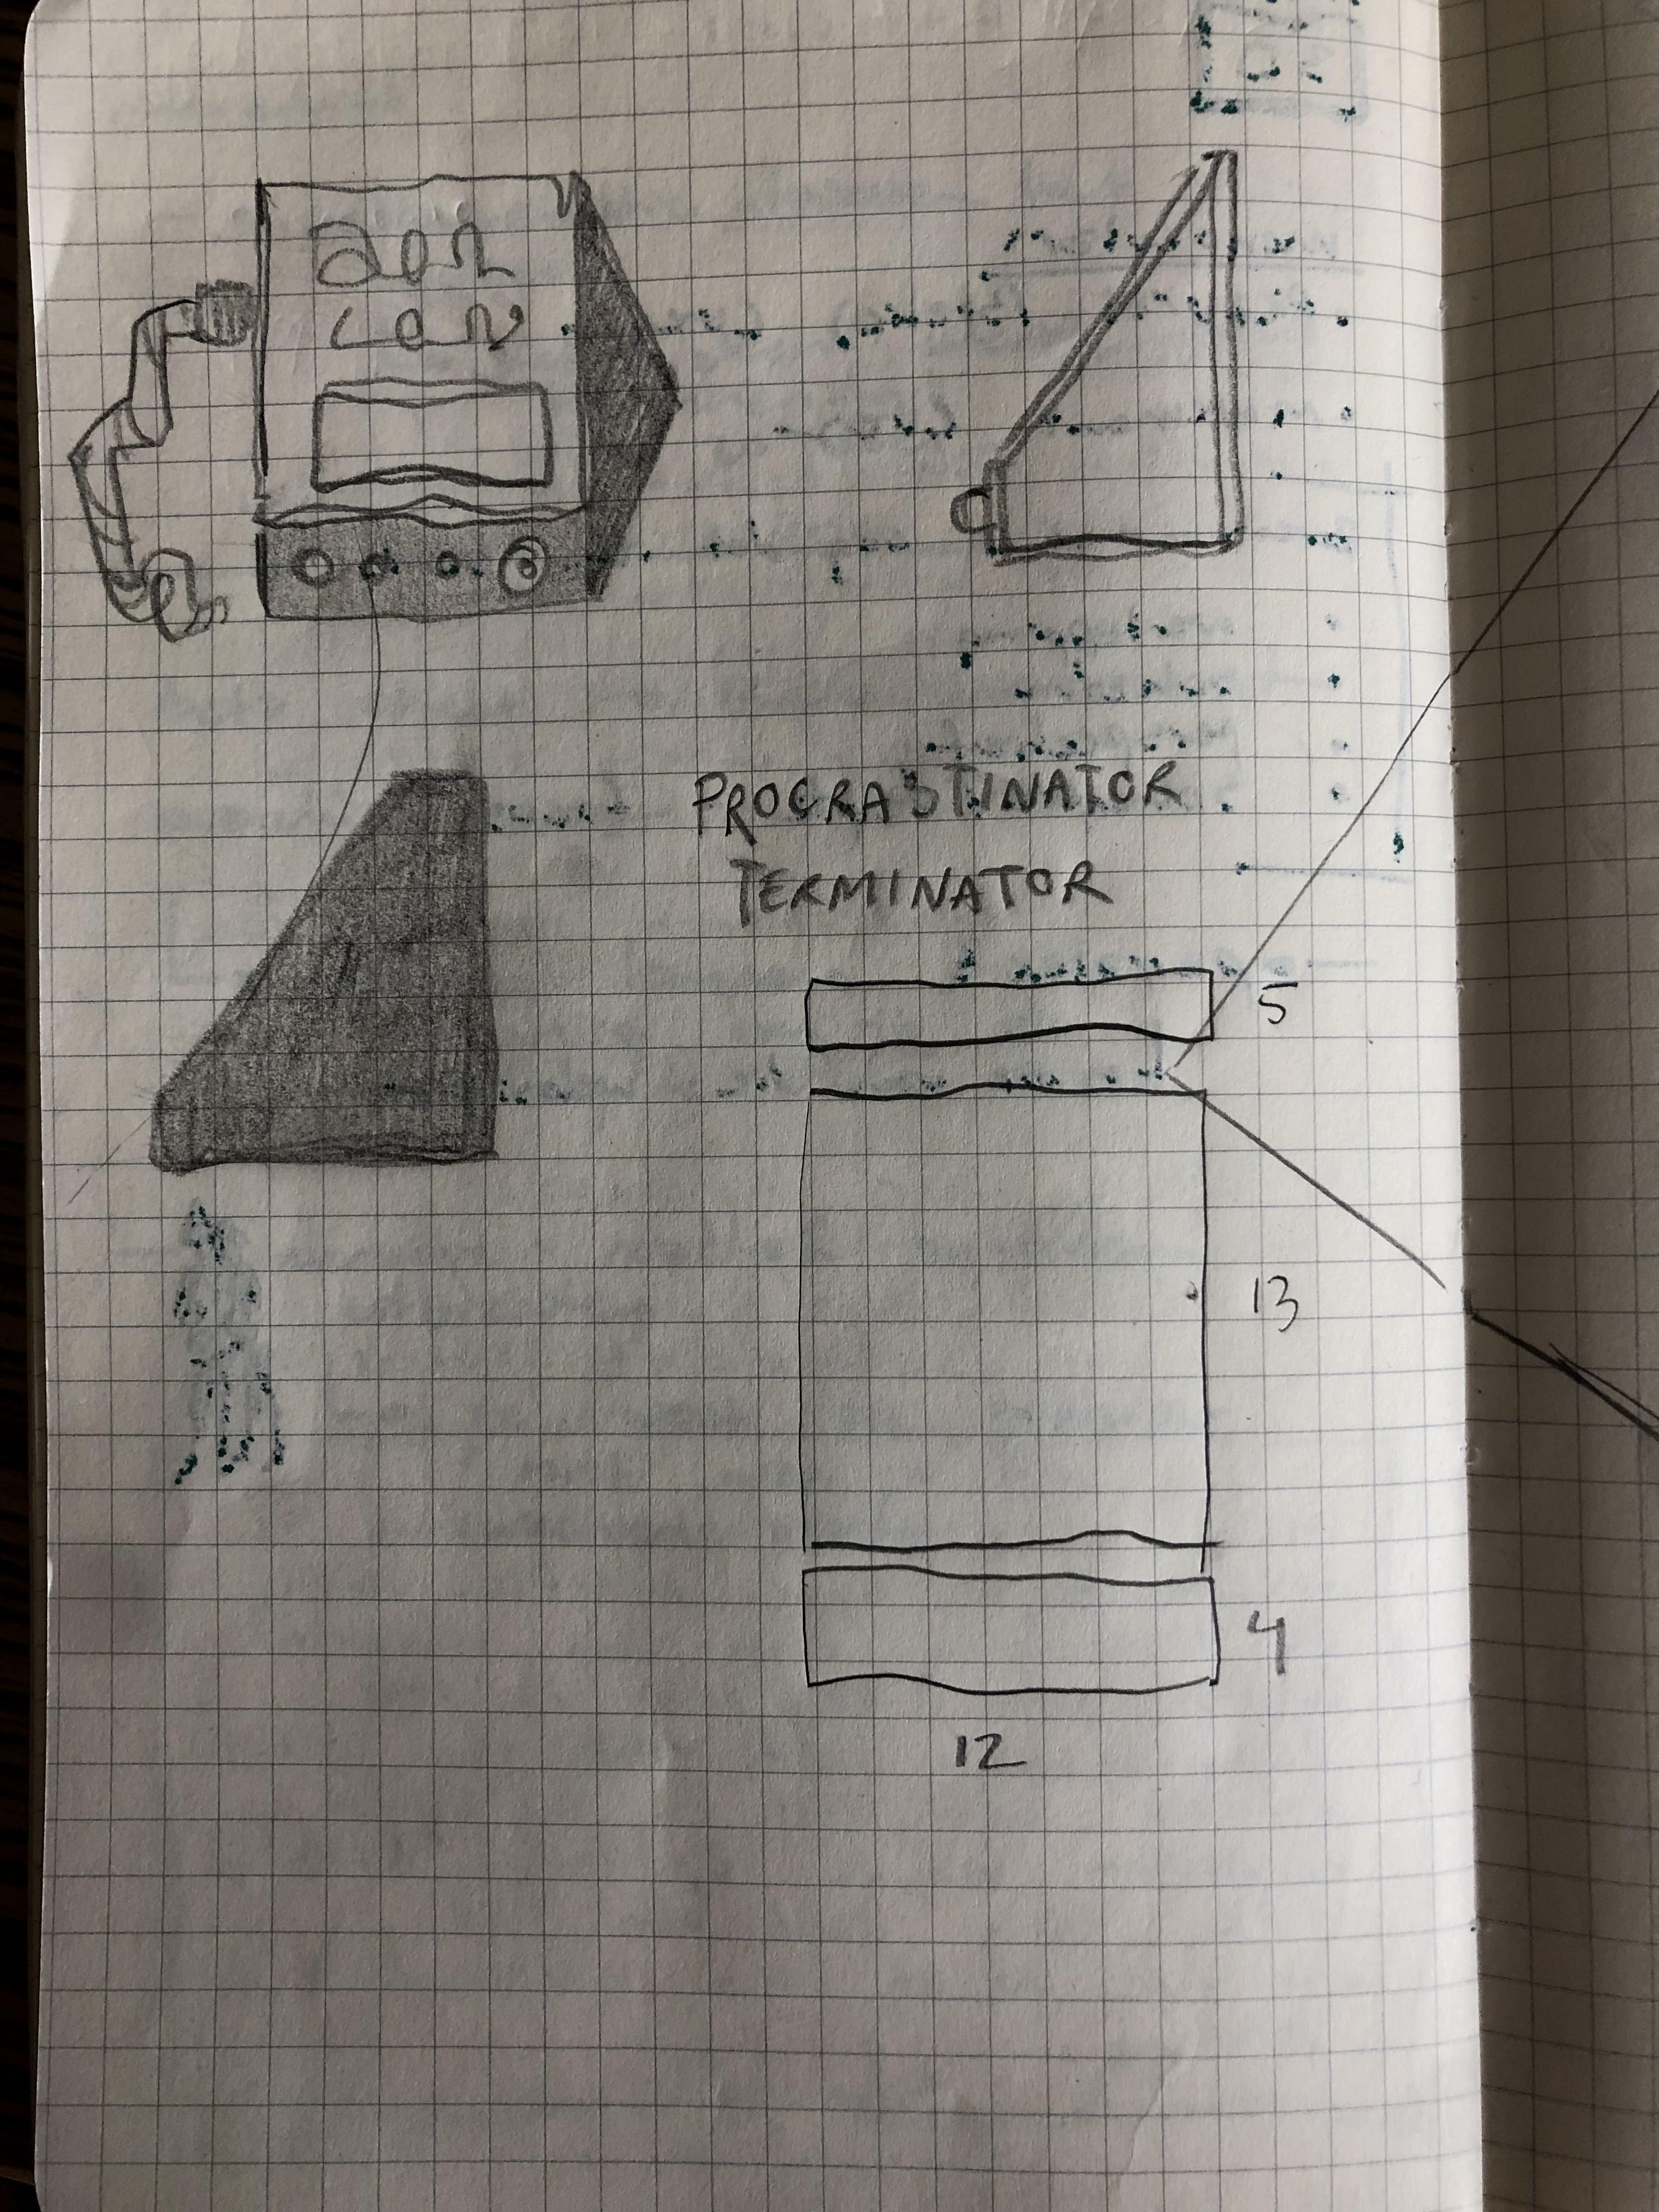 PROCRASTINATOR
TERMINATOR
5
13
4
12